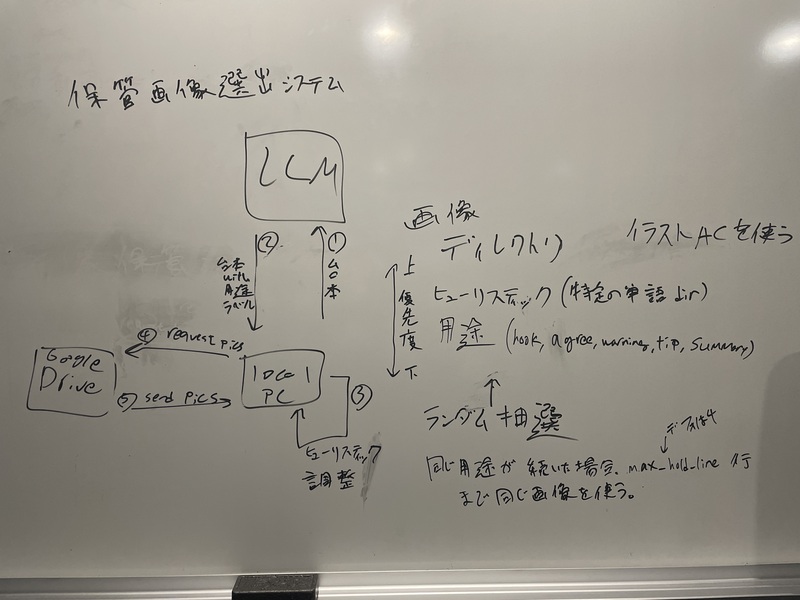 保管画像選出システム
LLM
②
台本
with
用途
ラベル
①
台本
④ request pics
Google
Drive
⑤ send pics
local
PC
③
ヒューリスティック
調整
画像
ディレクトリ
イラストACを使う
上
優先度
下
ヒューリスティック (特定の単語dir)
用途 (hook, agree, warning, tip, summary)
ランダム抽選
デフォは4
同じ用途が続いた場合、max_hold_line 行
まで同じ画像を使う。